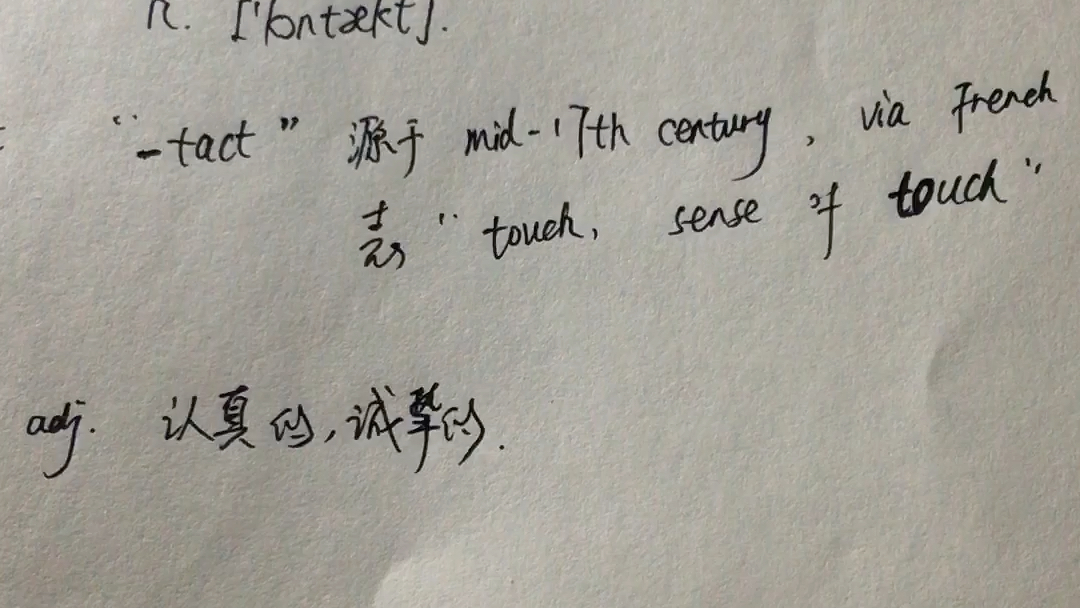 n. ['kɒntækt].
"-tact" 源于 mid-17th century, via French
表 "touch, sense of touch"
adj. 认真的,诚挚的.